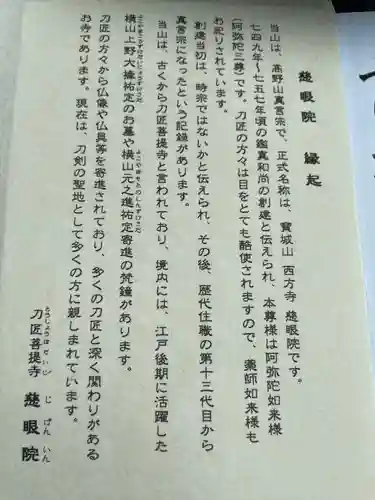 慈眼院 縁起
当山は、高野山真言宗で、正式名称は、寶城山 西方寺 慈眼院です。
七四九年~七五七年頃の鑑真和尚の創建と伝えられ、本尊様は阿弥陀如来様
(阿弥陀三尊)です。刀匠の方々は目をとても酷使されますので、薬師如来様も
お祀りされています。
創建当初は、時宗ではないかと伝えられ、その後、歴代住職の第十三代目から
真言宗になったという記録があります。
当山は、古くから刀匠菩提寺と言われており、境内には、江戸後期に活躍した
横山上野大掾祐定のお墓や横山元之進祐定寄進の梵鐘があります。
刀匠の方々から仏像や仏具等を寄進されており、多くの刀匠と深く関わりがある
お寺であります。現在は、刀剣の聖地として多くの方に親しまれています。
刀匠菩提寺 慈眼院
とうしょうぼだいじ じげんいん